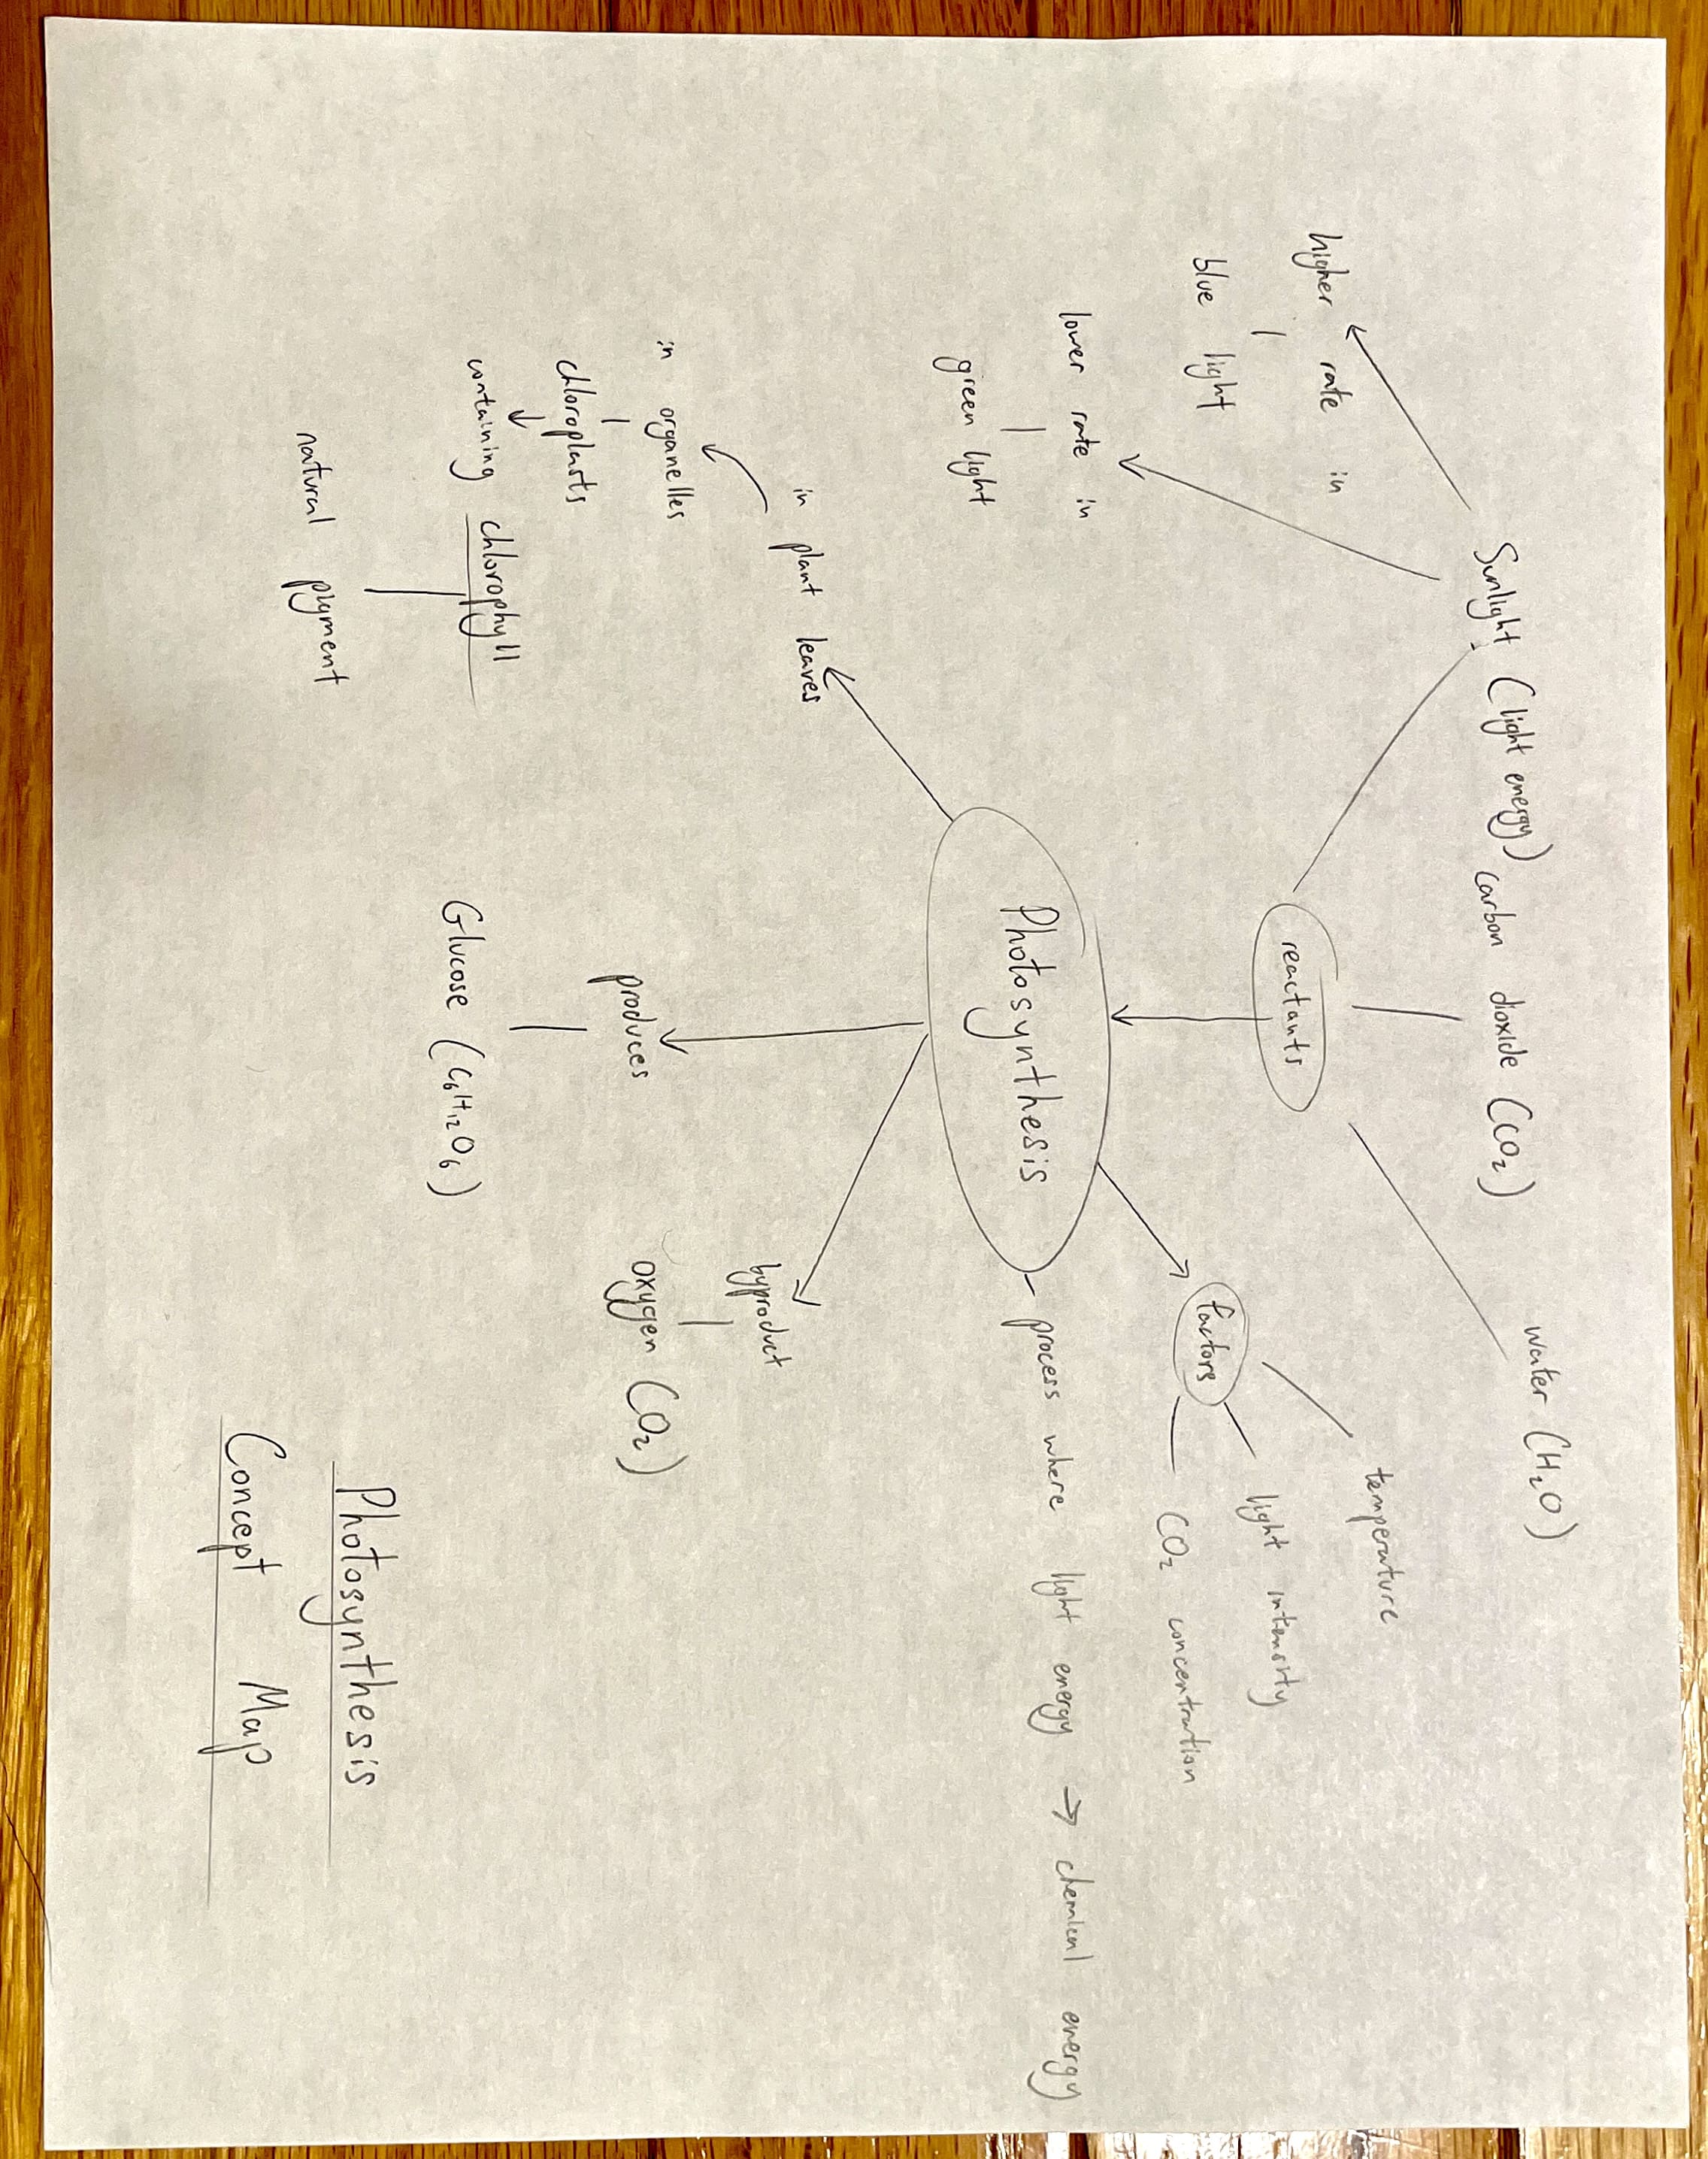 Sunlight (light energy)
carbon dioxide (CO₂)
water (H₂O)
higher rate in
blue light
lower rate in
green light
reactants
temperature
light intensity
factors
CO₂ concentration
Photosynthesis
process where light energy → chemical energy
in plant leaves
in organelles
chloroplasts
containing chlorophyll
natural pigment
produces
Glucose (C₆H₁₂O₆)
byproduct
oxygen (O₂)
Photosynthesis
Concept Map